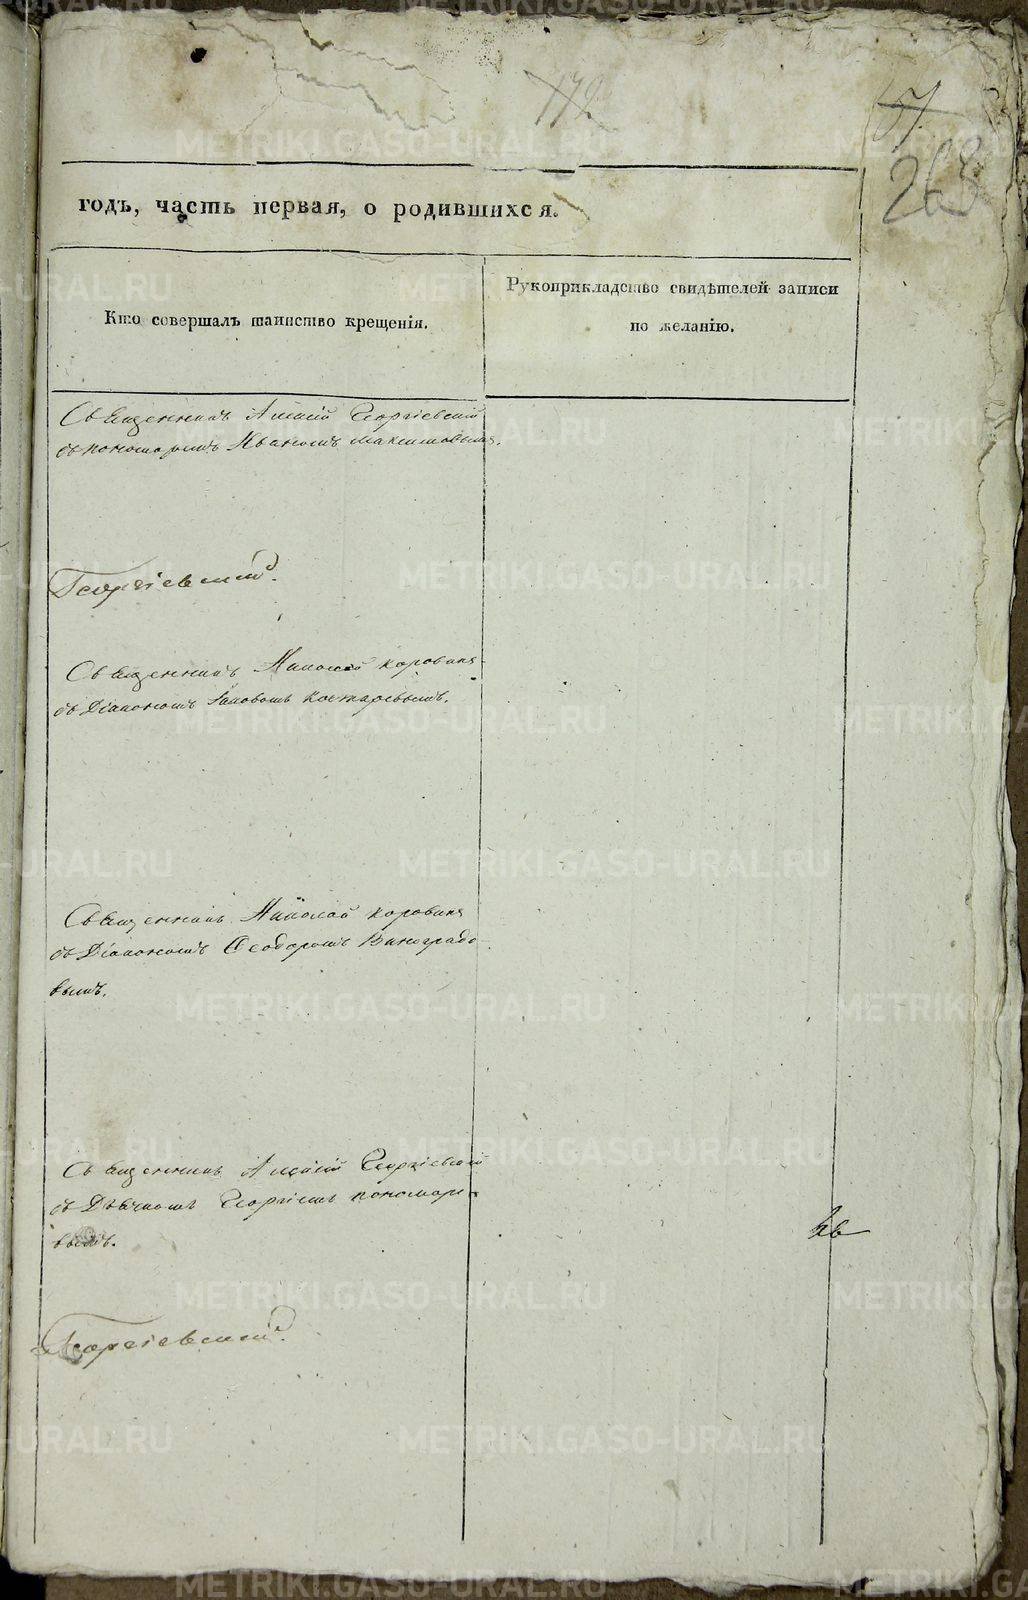 172
57
268
годъ, часть первая, о родившихся.
Кто совершалъ таинство крещенія.
Рукоприкладство свидѣтелей записи
по желанію.
Священникъ Алексій Георгіевскій
съ пономаремъ Иваномъ Максимовымъ.
Георгіевскій.
Священникъ Николай Коровинъ
съ Діакономъ Іаковомъ Костаревымъ.
Священникъ Николай Коровинъ
съ Діакономъ Ѳеодоромъ Виноградо
вымъ.
Священникъ Алексій Георгіевскій
съ Дьячкомъ Георгіемъ Пономаре
вымъ.
Георгіевскій.
METRIKI.GASO-URAL.RU